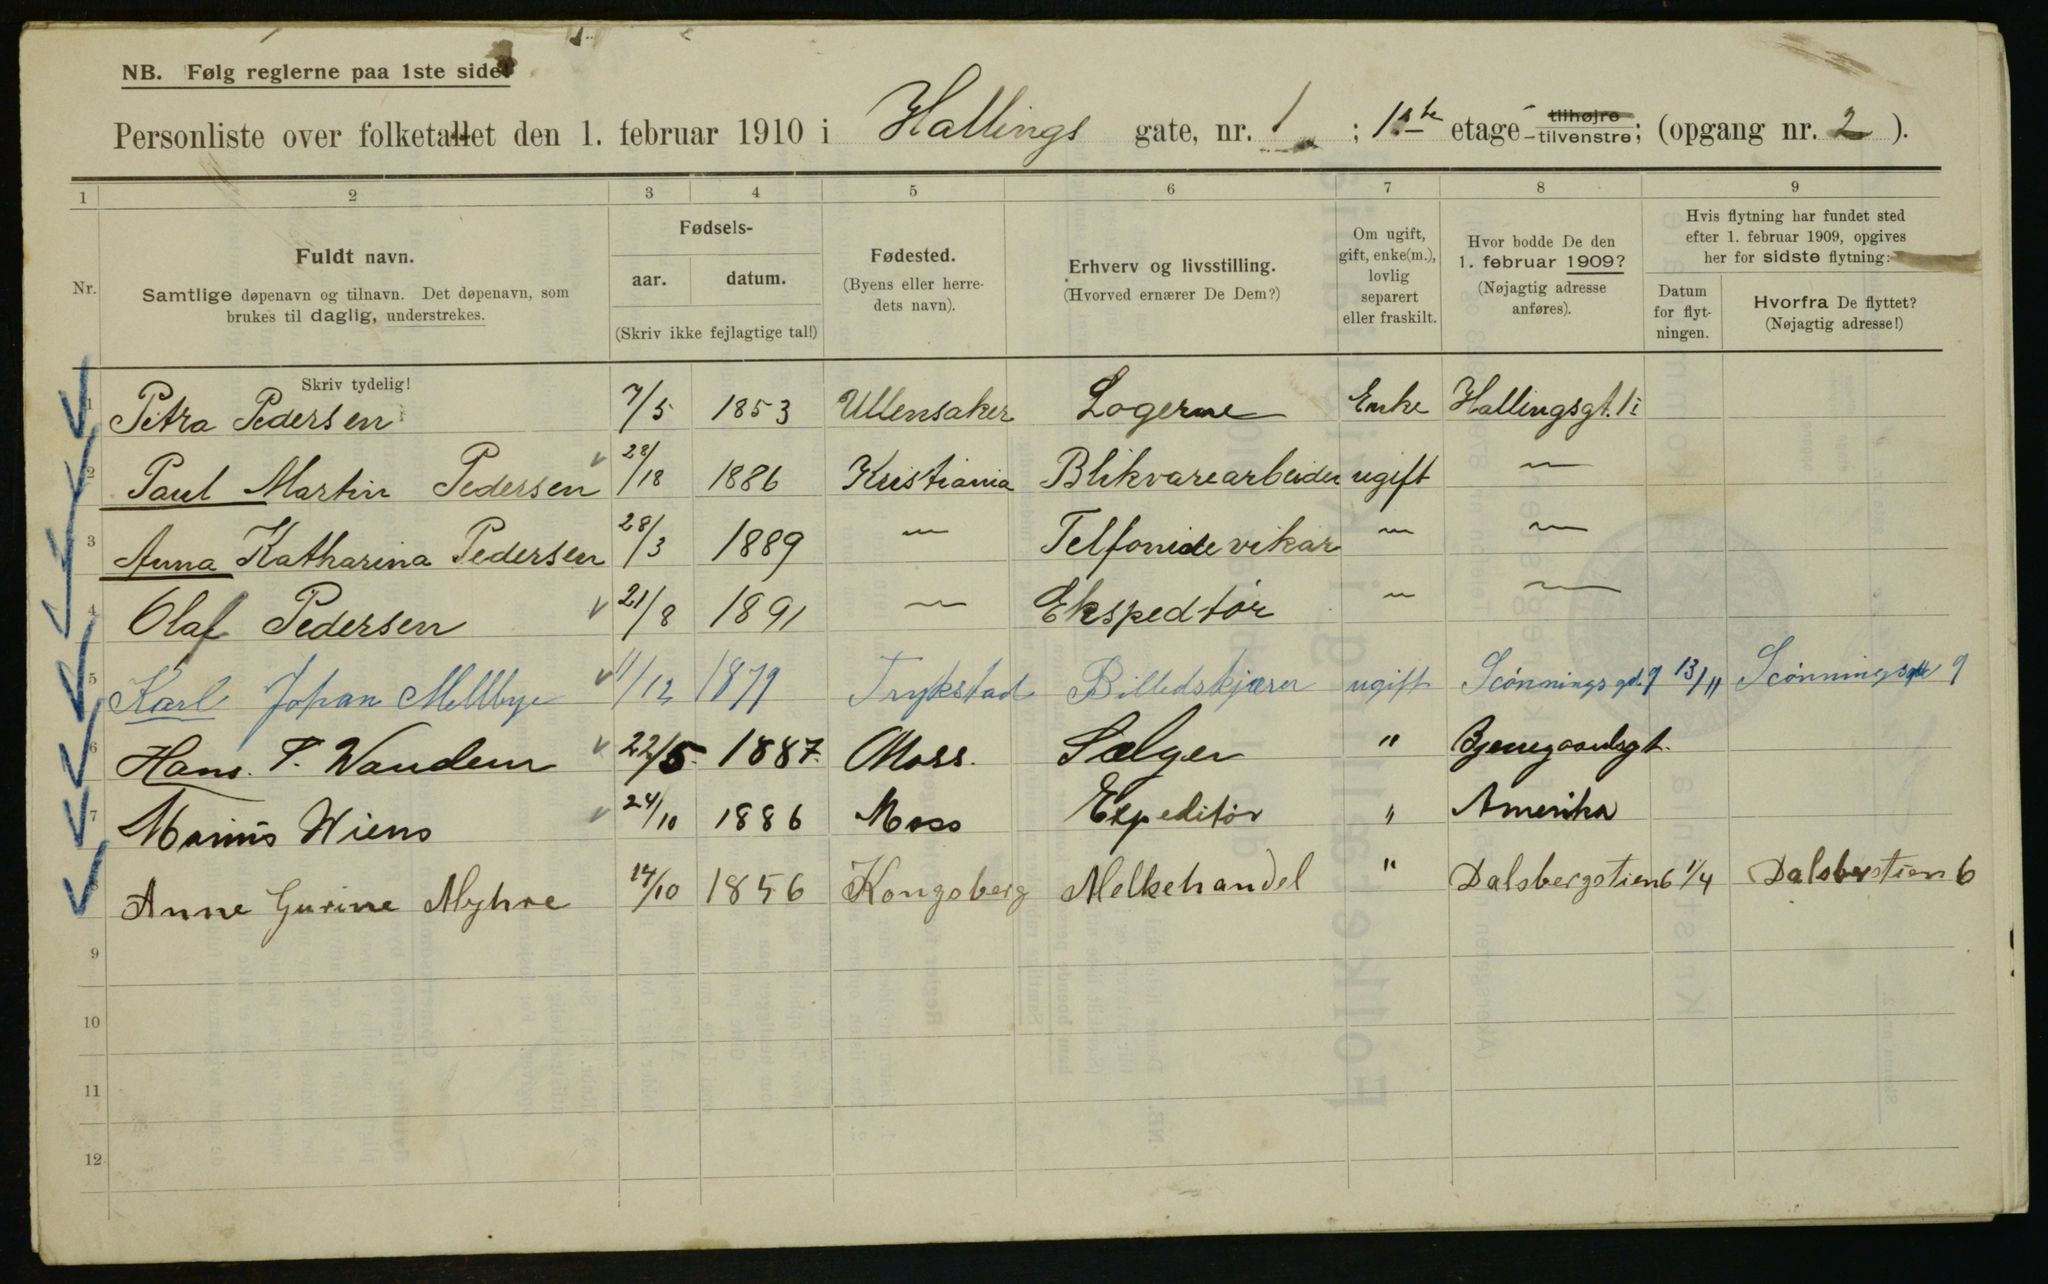 NB. Følg reglerne paa 1ste side!
Personliste over folketallet den 1. februar 1910 i Hallings gate, nr. 1 ; 1ste etage tilhøjre tilvenstre; (opgang nr. 2 ).
1 2 3 4 5 6 7 8 9
Nr.
Fuldt navn.
Samtlige døpenavn og tilnavn. Det døpenavn, som
brukes til daglig, understrekes.
Fødsels-
aar. datum.
(Skriv ikke fejlagtige tal!)
Fødested.
(Byens eller herre-
dets navn).
Erhverv og livsstilling.
(Hvorved ernærer De Dem?)
Om ugift,
gift, enke(m.),
lovlig
separert
eller fraskilt.
Hvor bodde De den
1. februar 1909?
(Nøjagtig adresse
anføres).
Hvis flytning har fundet sted
efter 1. februar 1909, opgives
her for sidste flytning:
Datum
for flyt-
ningen.
Hvorfra De flyttet?
(Nøjagtig adresse!)
Skriv tydelig!
1 Petra Pedersen 7/5 1853 Ullensaker Logerne Enke Hallingsgt. 1
2 Paul Martin Pedersen 28/18 1886 Kristiania Blikvarearbeider ugift —
3 Anna Katharina Pedersen 28/3 1889 — Telfonide vikar — —
4 Olaf Pedersen 21/8 1891 — Ekspedtør — —
5 Karl Johan Mellbye 11/12 1879 Trykstad Billedskjærer ugift Scønningsgt. 9 13/11 Scønningsgt 9
6 Hans. T. Wandem 22/5. 1887. Moss. Sælger " Bjerregaardsgt.
7 Marius Wiens 24/10 1886 Moss Expeditør " Amerika
8 Anne Gurine Myhre 14/10 1856 Kongsberg Melkehandel " Dalsbergstien 6 1/4 Dalsberstien 6
9
10
11
12